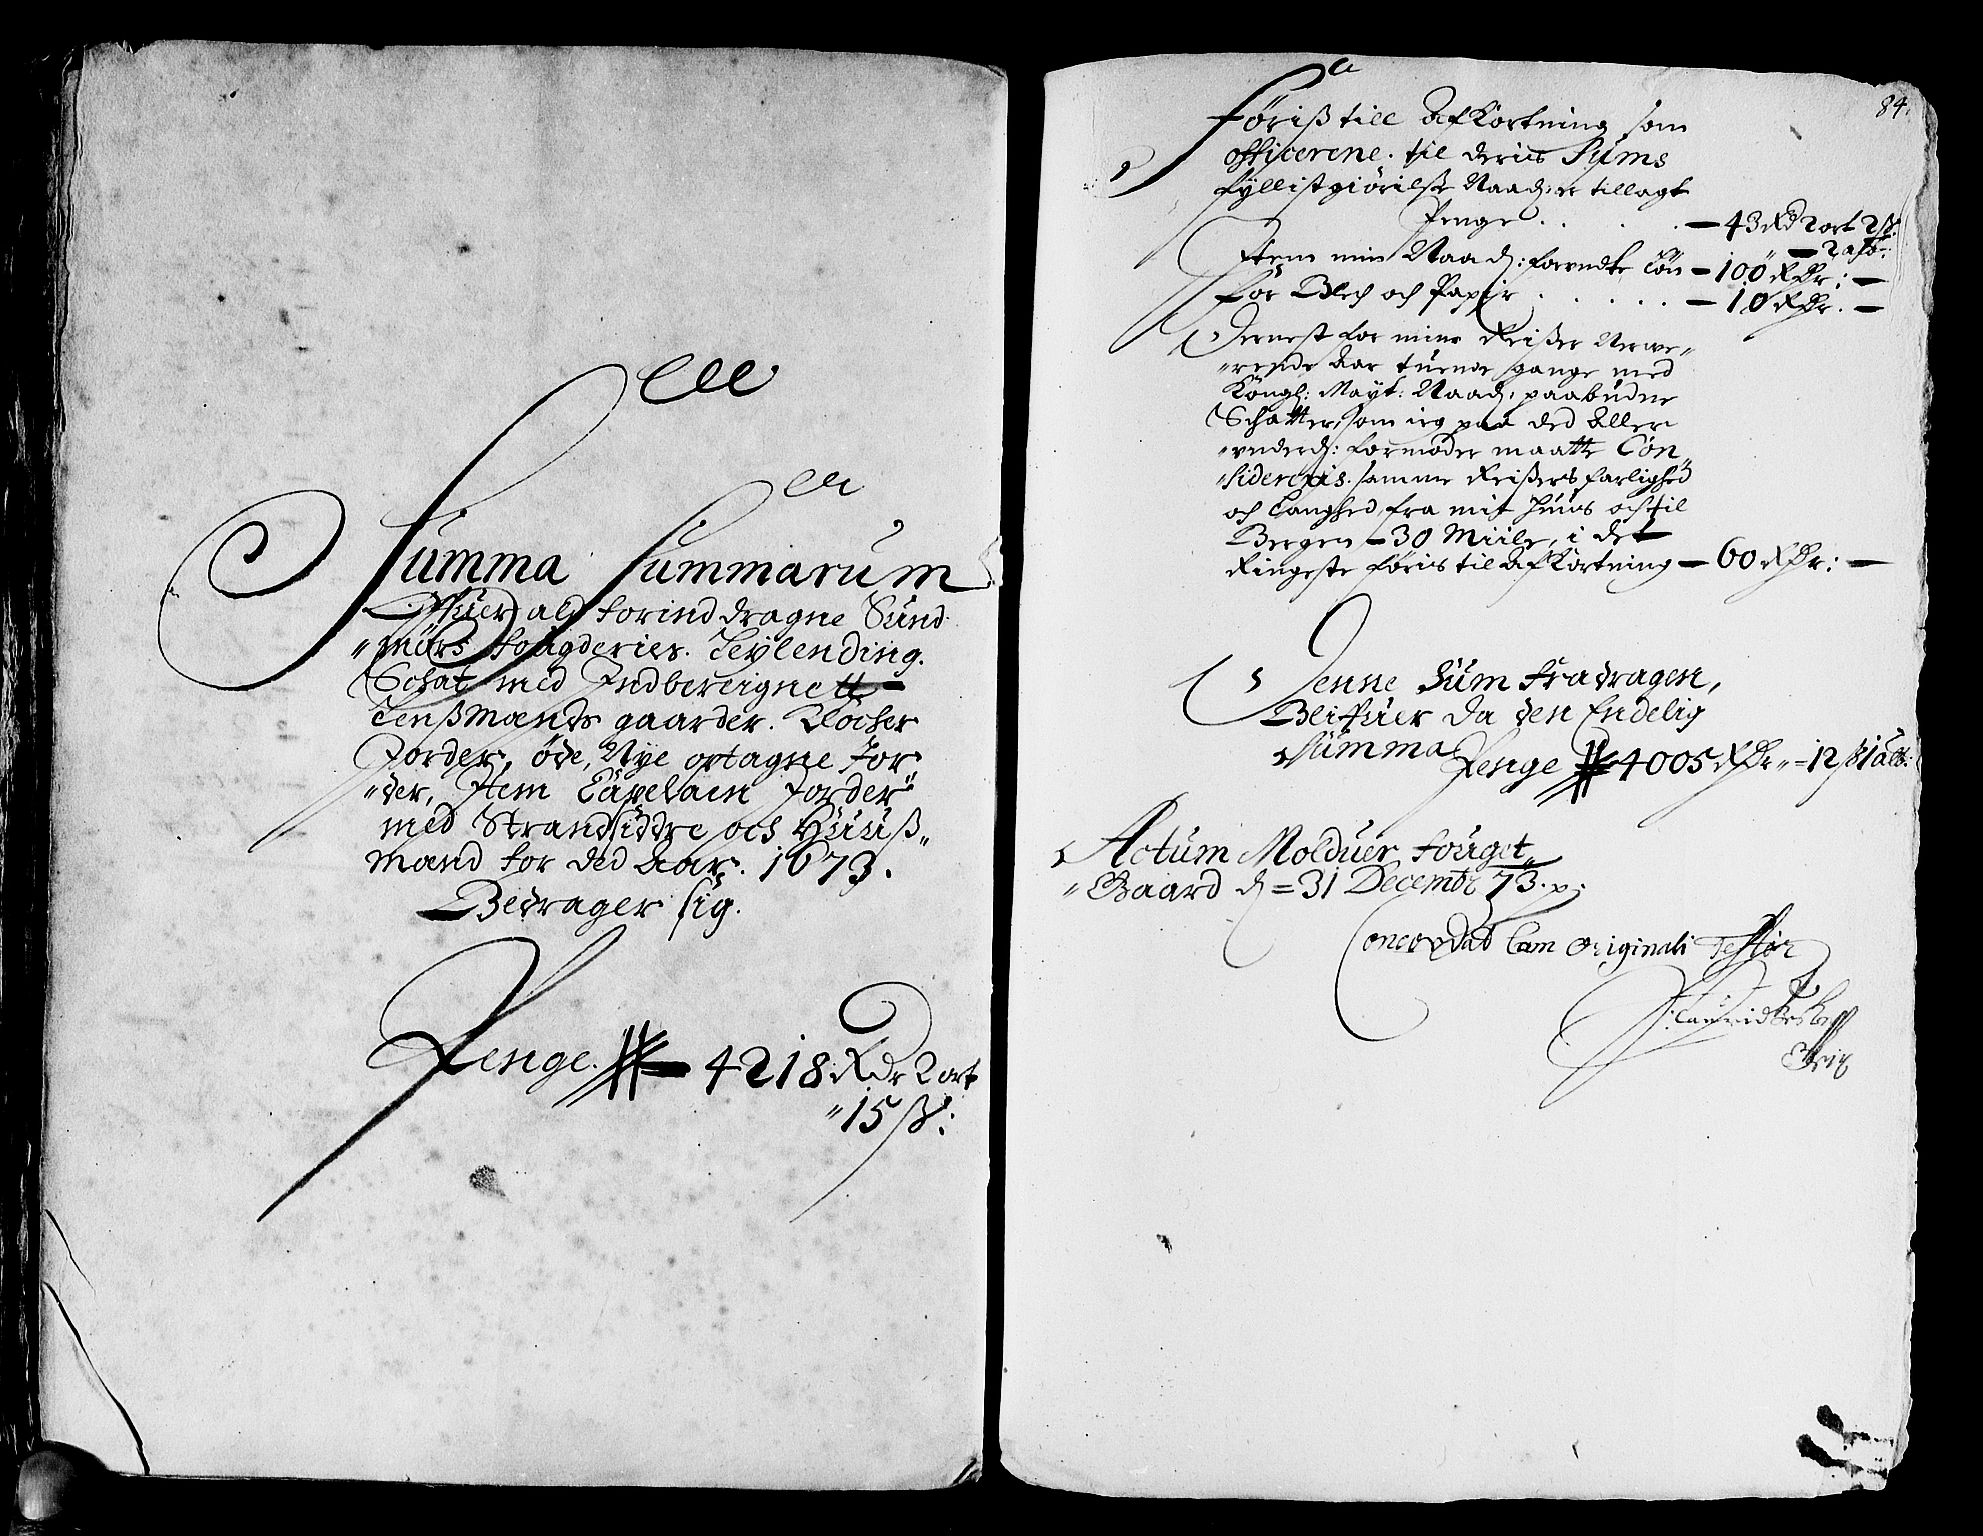 Summa Summarum
Offuer ald forinddragne Sund-
mörs fougderies. Leylending.
Schat med Indbereignett
Lenßmænds gaarder. Klocher
Jorder, øde, Nye optagne Jor-
der, Item Capelaen Jorder
med Strandsiddre och Huuß-
mænd for ded Aar. 1673.
Bedrager sig.
Penge. 4218 Rdr 2 ort
15 ß:
84.
Føriß till Afkortning som
officerene. til deris Sums
fyllistgiörilße Naad: er tillagt
Penge . . . . — 43 Rd 2 ort 2 ß.
— 2 alb:
Item min Naad: forundte Løn — 100 Rdr: —
for Blech och Papir . . . . . — 10 Rdr. —
Dernest for mine Reißer Nerwe-
rende Aar tuende gange med
Kongl: Mayt: Naad: paabudne
Schatter, som ieg paa ded Aller
underd: formoder maatte Con-
sidereris. samme Reißers farlighed
och Langhed, fra mit Huus och til
Bergen — 30 Miile, i det
Ringeste føris til Afkortning — 60 Rdr: —
Denne Sum fradragen,
Bliffuer da den Endelig
Summa
Penge 4005 Rdr — 12 ß 1 alb:
Actum Molduer fouget
Gaard d = 31 Decembr 73.
Concordat Cum Originali Testor